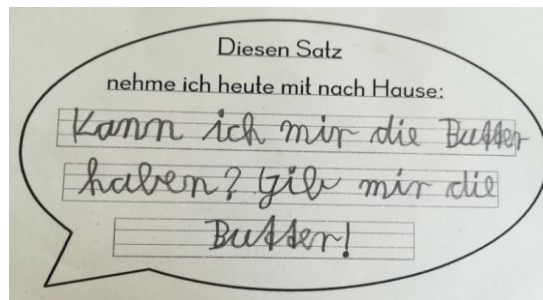 Diesen Satz
nehme ich heute mit nach Hause:
Kann ich mir die Butter
haben? Gib mir die
Butter!